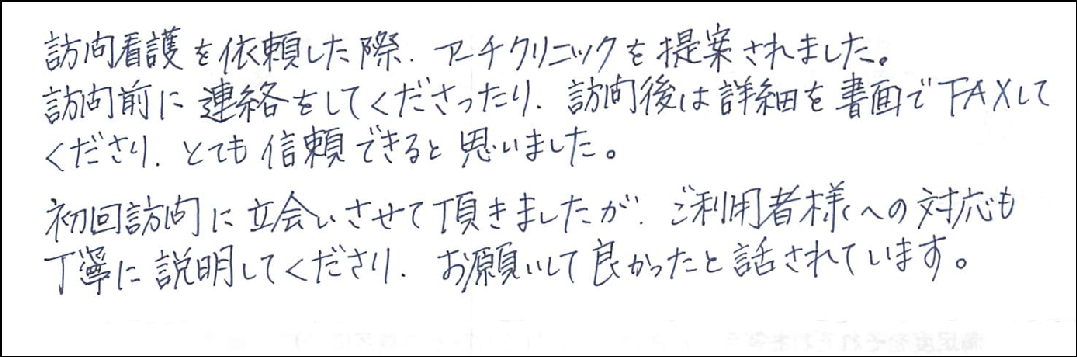 訪問看護を依頼した際、アーチクリニックを提案されました。
訪問前に連絡をしてくださったり、訪問後は詳細を書面でFAXして
くださり、とても信頼できると思いました。
初回訪問に立会いさせて頂きましたが、ご利用者様への対応も
丁寧に説明してくださり、お願いして良かったと話されています。